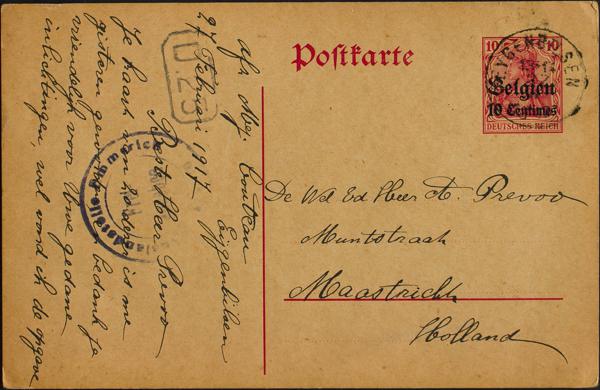 Postkarte
10 10
Belgien
10 Centimes
DEUTSCHES REICH
D.23
Emmerich
afz Mej.
Eigenbilsen
27 Februari 1917
Beste Heer Prevoo
Je kaart van eerder is me
gisteren geworden, bedank je
vriendelijk voor Uwe gedane
inlichtingen, wel vond ik de opgave
De Wel Ed Heer A. Prevoo
Muntstraat
Maastricht
Holland